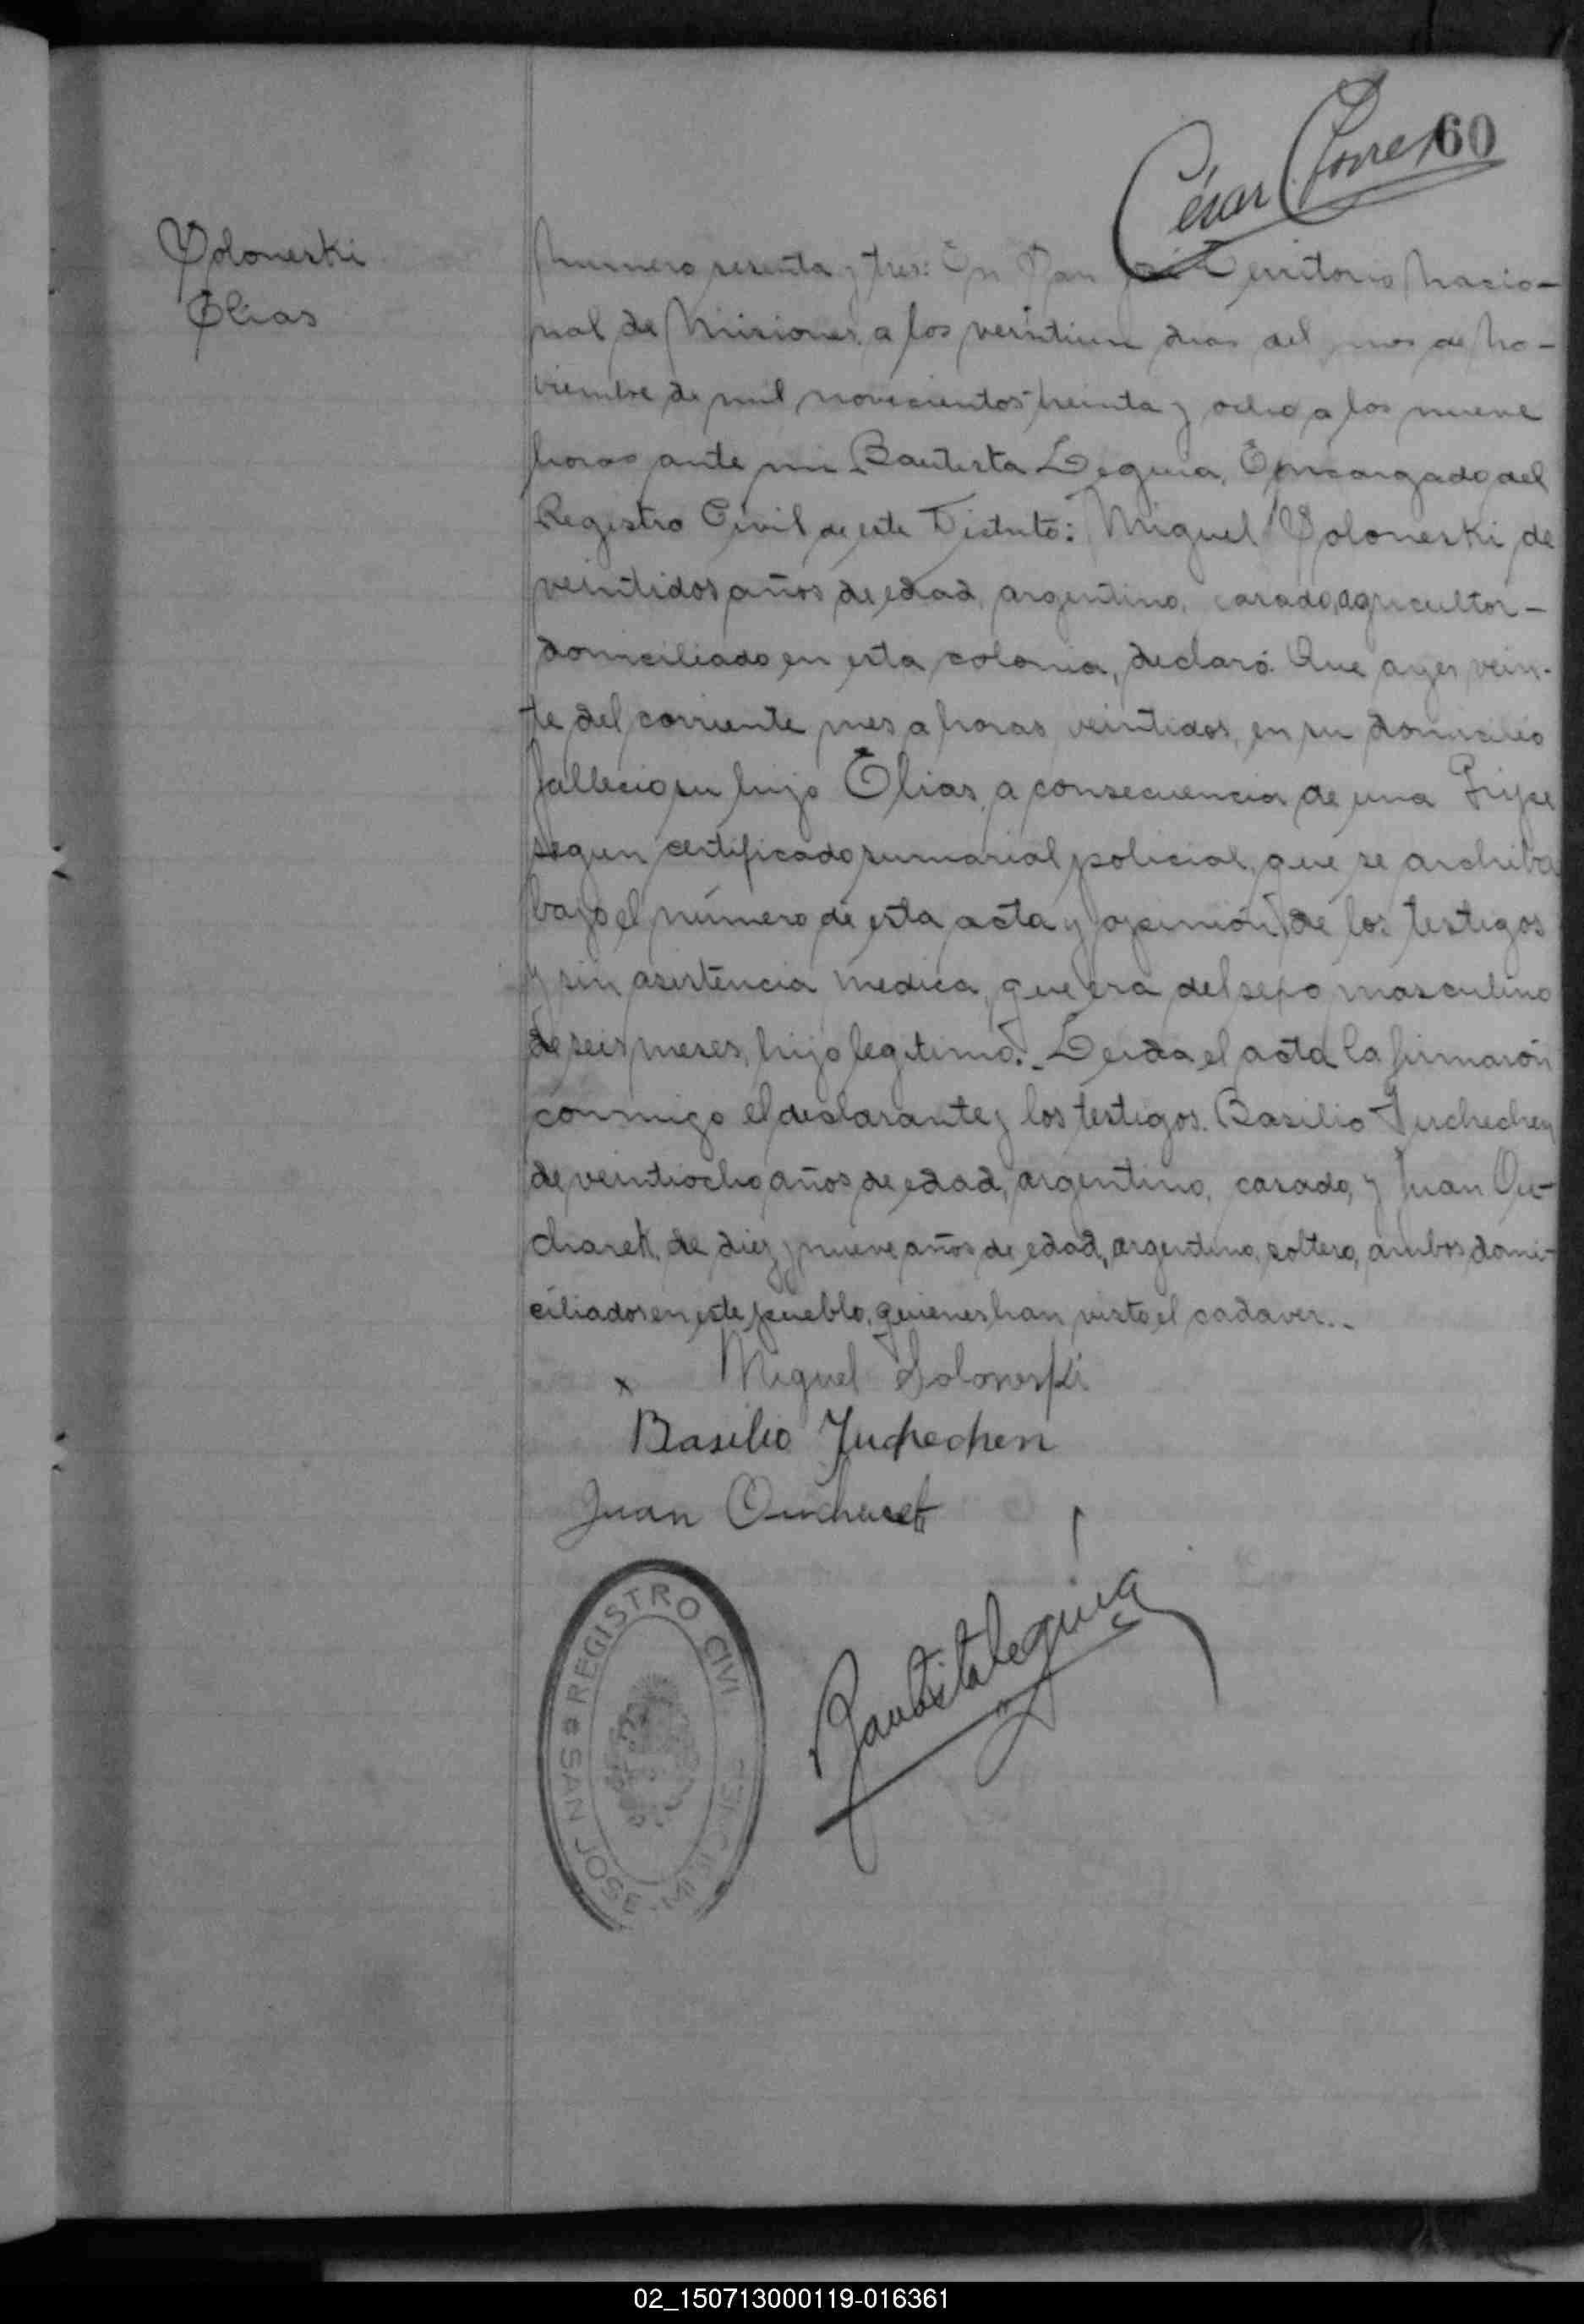 César Torres
60
Soloneski
Elias
Numero sesenta y tres: En San José Territorio Nacio-
nal de Misiones, a los veintiun dias del mes de No-
viembre de mil novecientos treinta y ocho a los nueve
horas ante mi Bautista Leguia, Encargado del
Registro Civil de este Distrito: Miguel Soloneski de
veintidos años de edad, argentino, casado, agricultor-
domiciliado en esta colonia, declaró: Que ayer vein-
te del corriente mes a horas veintidos, en su domicilio
fallecio su hijo Elias, a consecuencia de una Gripe
segun certificado sumarial policial, que se archiba
bajo el número de esta acta y opinión de los testigos
y sin asistencia medica, que era del sexo masculino
de seis meses, hijo legitimo.- Leida el acta la firmarón
conmigo el declarante y los testigos. Basilio Juchechen
de veintiocho años de edad, argentino, casado, y Juan Ou-
charek, de diez y nueve años de edad, argentino, soltero, ambos domi-
ciliados en este pueblo, quienes han visto el cadaver..-
x Miguel Soloneski
Basilio Juchechen
Juan
Bautista Leguia
REGISTRO CIVI
SAN JOSE
02_150713000119-016361